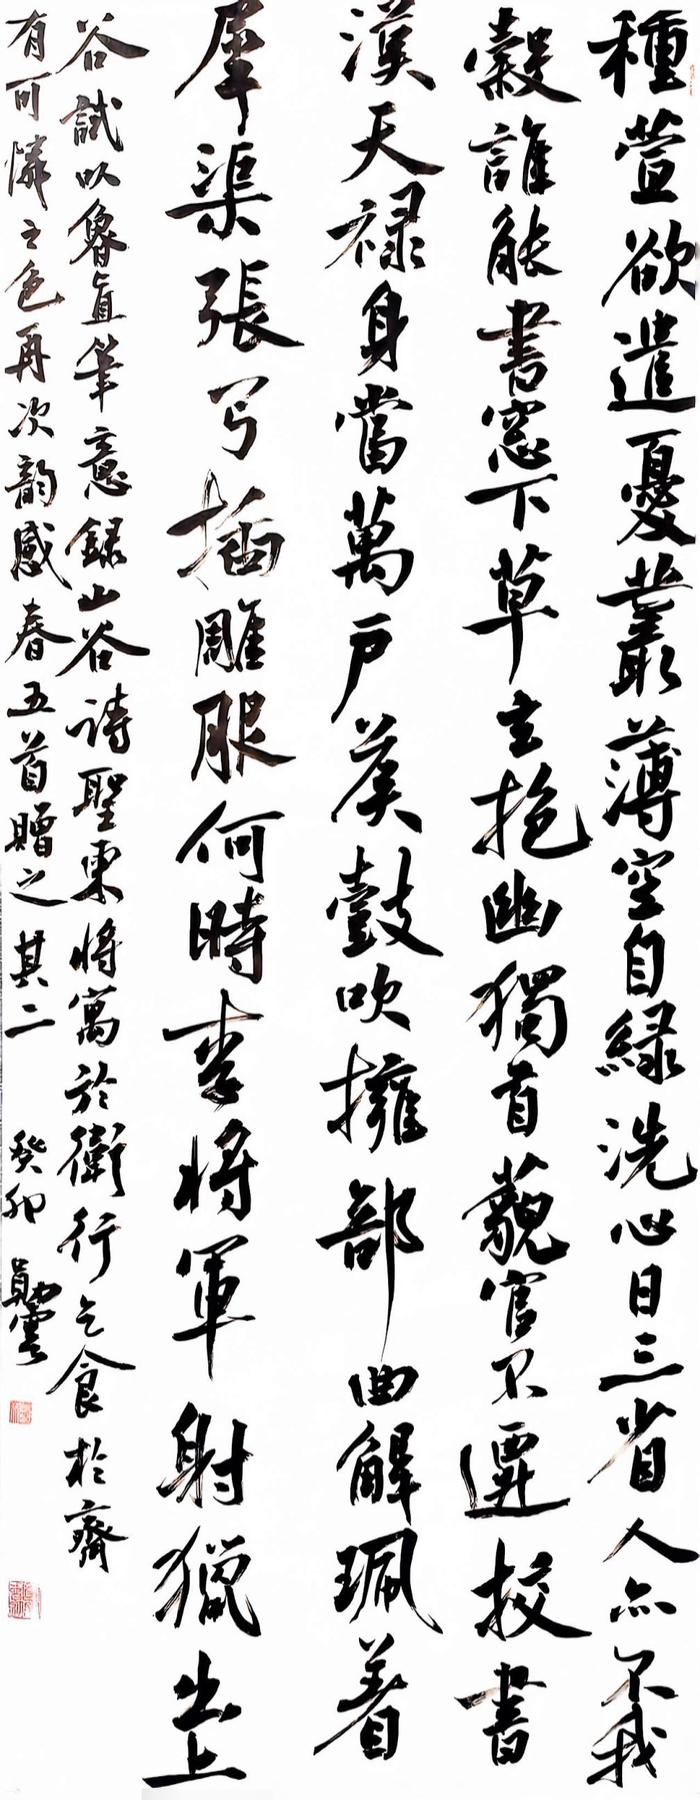 種萱欲遣憂叢薄空自緑洗心日三省人亦不我
穀誰能書窓下草玄抱幽獨首藐官不遷挍書
漢天禄身當萬戸矦鼓吹擁部曲解珮着
犀渠張弓插雕服何時李將軍射獵出上
谷試以魯直筆意録山谷詩聖柬將寓於衛行乞食於齊
有可憐之色再次韵感春五首贈之其二 癸卯 勛雲